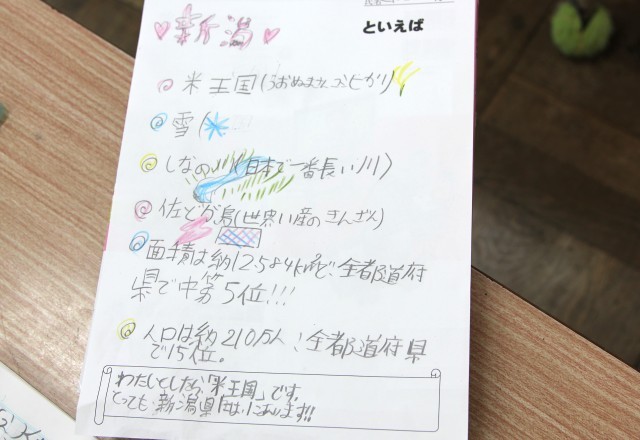 新潟 といえば
米王国(うおぬまさんコシヒカリ)
雪
しなの川(日本で一番長い川)
佐どが島(世界い産のきんざん)
面積は納12.584km²で、全都道府
県で中第5位!!!
人口は納210万人!全都道府県
で15位。
わたしとしたら「米王国」です。
とっても新潟県